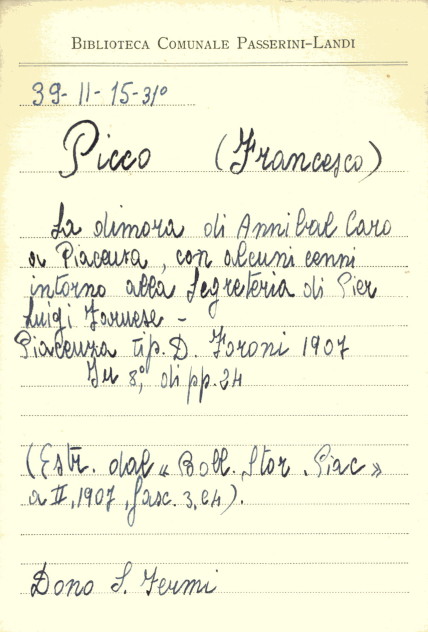 BIBLIOTECA COMUNALE PASSERINI-LANDI
39-II-15-31º
Picco (Francesco)
La dimora di Annibal Caro
a Piacenza, con alcuni cenni
intorno alla Segreteria di Pier
Luigi Farnese -
Piacenza tip. D. Foroni 1907
In 8º, di pp. 24
(Estr. dal « Boll. Stor. Piac »
a II, 1907, fasc. 3, e 4).
Dono S. Fermi